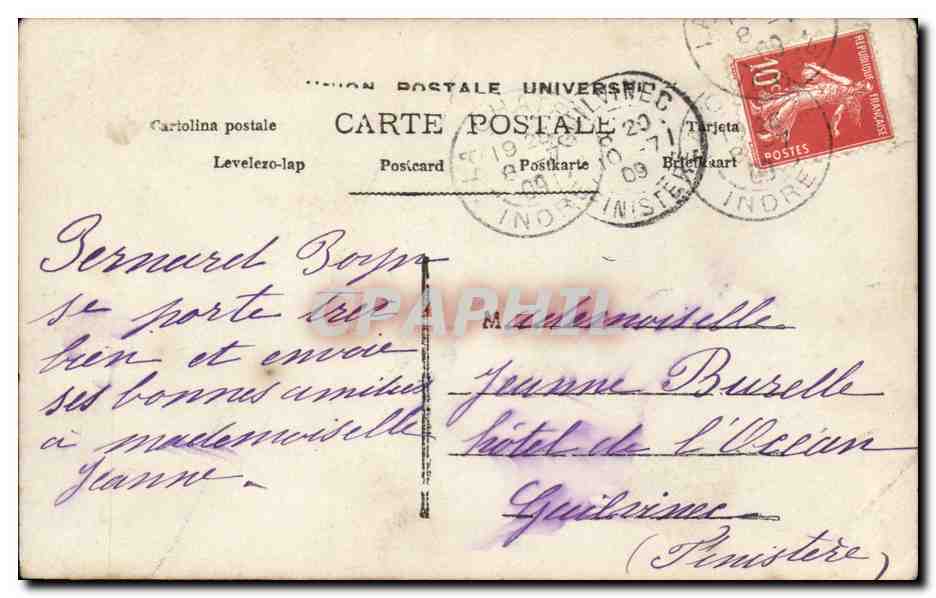 UNION POSTALE UNIVERSELLE
CARTE POSTALE
Cartolina postale
Tarjeta
Levelezo-lap
Postcard
Postkarte
Briefkaart
10c
RÉPUBLIQUE FRANÇAISE
POSTES
INDRE
19
8
09
GUILVINEC
20
10 -7
09
FINISTÈRE
INDRE
CPAPHIL
Bernard
se porte très
bien et envoie
ses bonnes amitiés
à mademoiselle
Jeanne.
Mademoiselle
Jeanne Burelle
hôtel de l'Océan
Guilvinec
(Finistère)